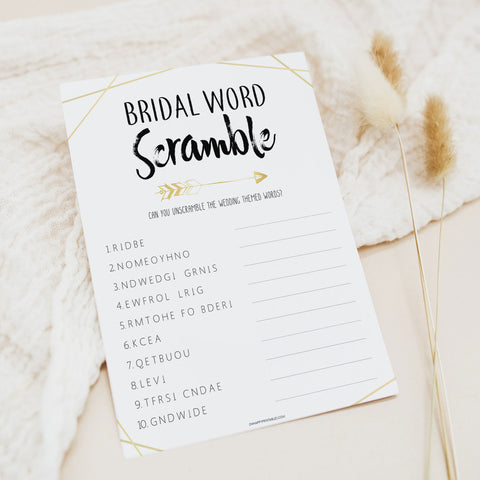 BRIDAL WORD
Scramble
CAN YOU UNSCRAMBLE THE WEDDING THEMED WORDS?
1.RIDBE
2.NOMEOYHNO
3.NDWEDGI GRNIS
4.EWFROL LRIG
5.RMTOHE FO BDERI
6.KCEA
7.QETBUOU
8.LEVI
9.TFRSI CNDAE
10.GNDWIDE